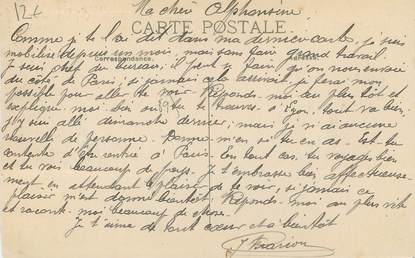 12 f
Ma chère Alphonsine
CARTE POSTALE
Comme je te l'ai dit dans ma dernière carte, je suis
mobilisé depuis un mois, mais sans faire grand travail.
Correspondance
Je suis chef du bureau; il peut y faire qu'on nous envoie
du côté de Paris; si jamais cela arrivait je ferai mon
possible pour aller te voir. Réponds-moi au plus tôt et
explique-moi bien où tu te trouves. A Lyon, tout va bien,
j'y suis allé dimanche dernier; mais je n'ai aucune
nouvelle de personne. Donne m'en si tu en as. Es-tu
contente d'être rentrée à Paris. En tout cas, tu voyages bien
et tu vois beaucoup de pays. Je t'embrasse bien affectueuse-
ment en attendant le plaisir de te voir, si jamais ce
plaisir m'est donné bientôt. Réponds-moi au plus vite
et raconte-moi beaucoup de choses.
Je t'aime de tout cœur et à bientôt